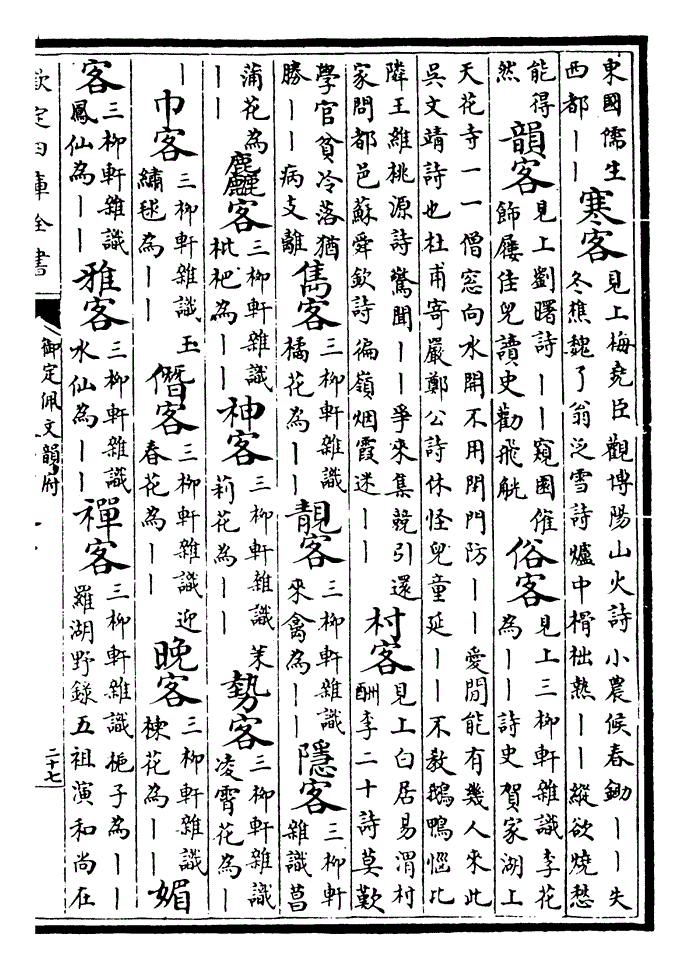 東國儒生
西都｜｜
寒客
見上梅堯臣觀博陽山火詩小農候春鋤｜｜失
冬樵魏了翁泛雪詩爐中榾柮熟｜｜縱欲燒愁
能得
然
韻客
見上劉曙詩｜｜窺園催
飾屨佳兒讀史勸飛觥
俗客
見上三柳軒雜識李花
為｜｜詩史賀家湖上
天花寺一一僧窓向水開不用閉門防｜｜愛閒能有幾人來此
吳文靖詩也杜甫寄嚴鄭公詩休怪兒童延｜｜不教鵝鴨惱比
隣王維桃源詩驚聞｜｜爭來集競引還
家問都邑蘇舜欽詩徧嶺烟霞迷｜｜
村客
見上白居易渭村
酬李二十詩莫歎
學官貧冷落猶
勝｜｜病支離
雋客
三柳軒雜識
橘花為｜｜
靚客
三柳軒雜識
來禽為｜｜
隱客
三柳軒
雜識菖
蒲花為
｜｜
麤客
三柳軒雜識
枇杷為｜｜
神客
三柳軒雜識茉
莉花為｜｜
勢客
三柳軒雜識
凌霄花為｜
｜
巾客
三柳軒雜識玉
繡毬為｜｜
僭客
三柳軒雜識迎
春花為｜｜
晚客
三柳軒雜識
楝花為｜｜
媚
客
三柳軒雜識
鳳仙為｜｜
雅客
三柳軒雜識
水仙為｜｜
禪客
三柳軒雜識梔子為｜｜
羅湖野錄五祖演和尚在
欽定四庫全書
御定佩文韻府
二十七